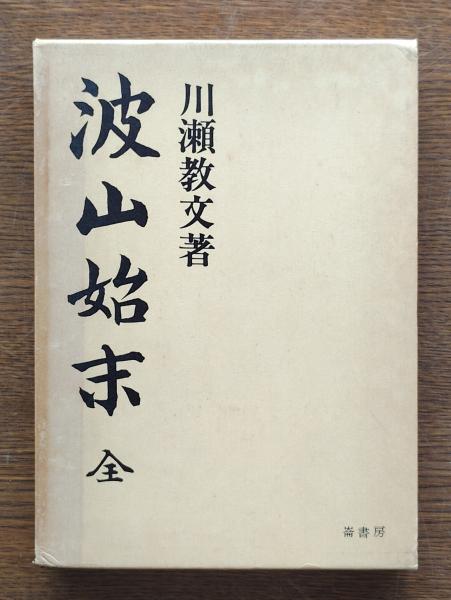 川瀬教文著
波山始末 全
崙書房